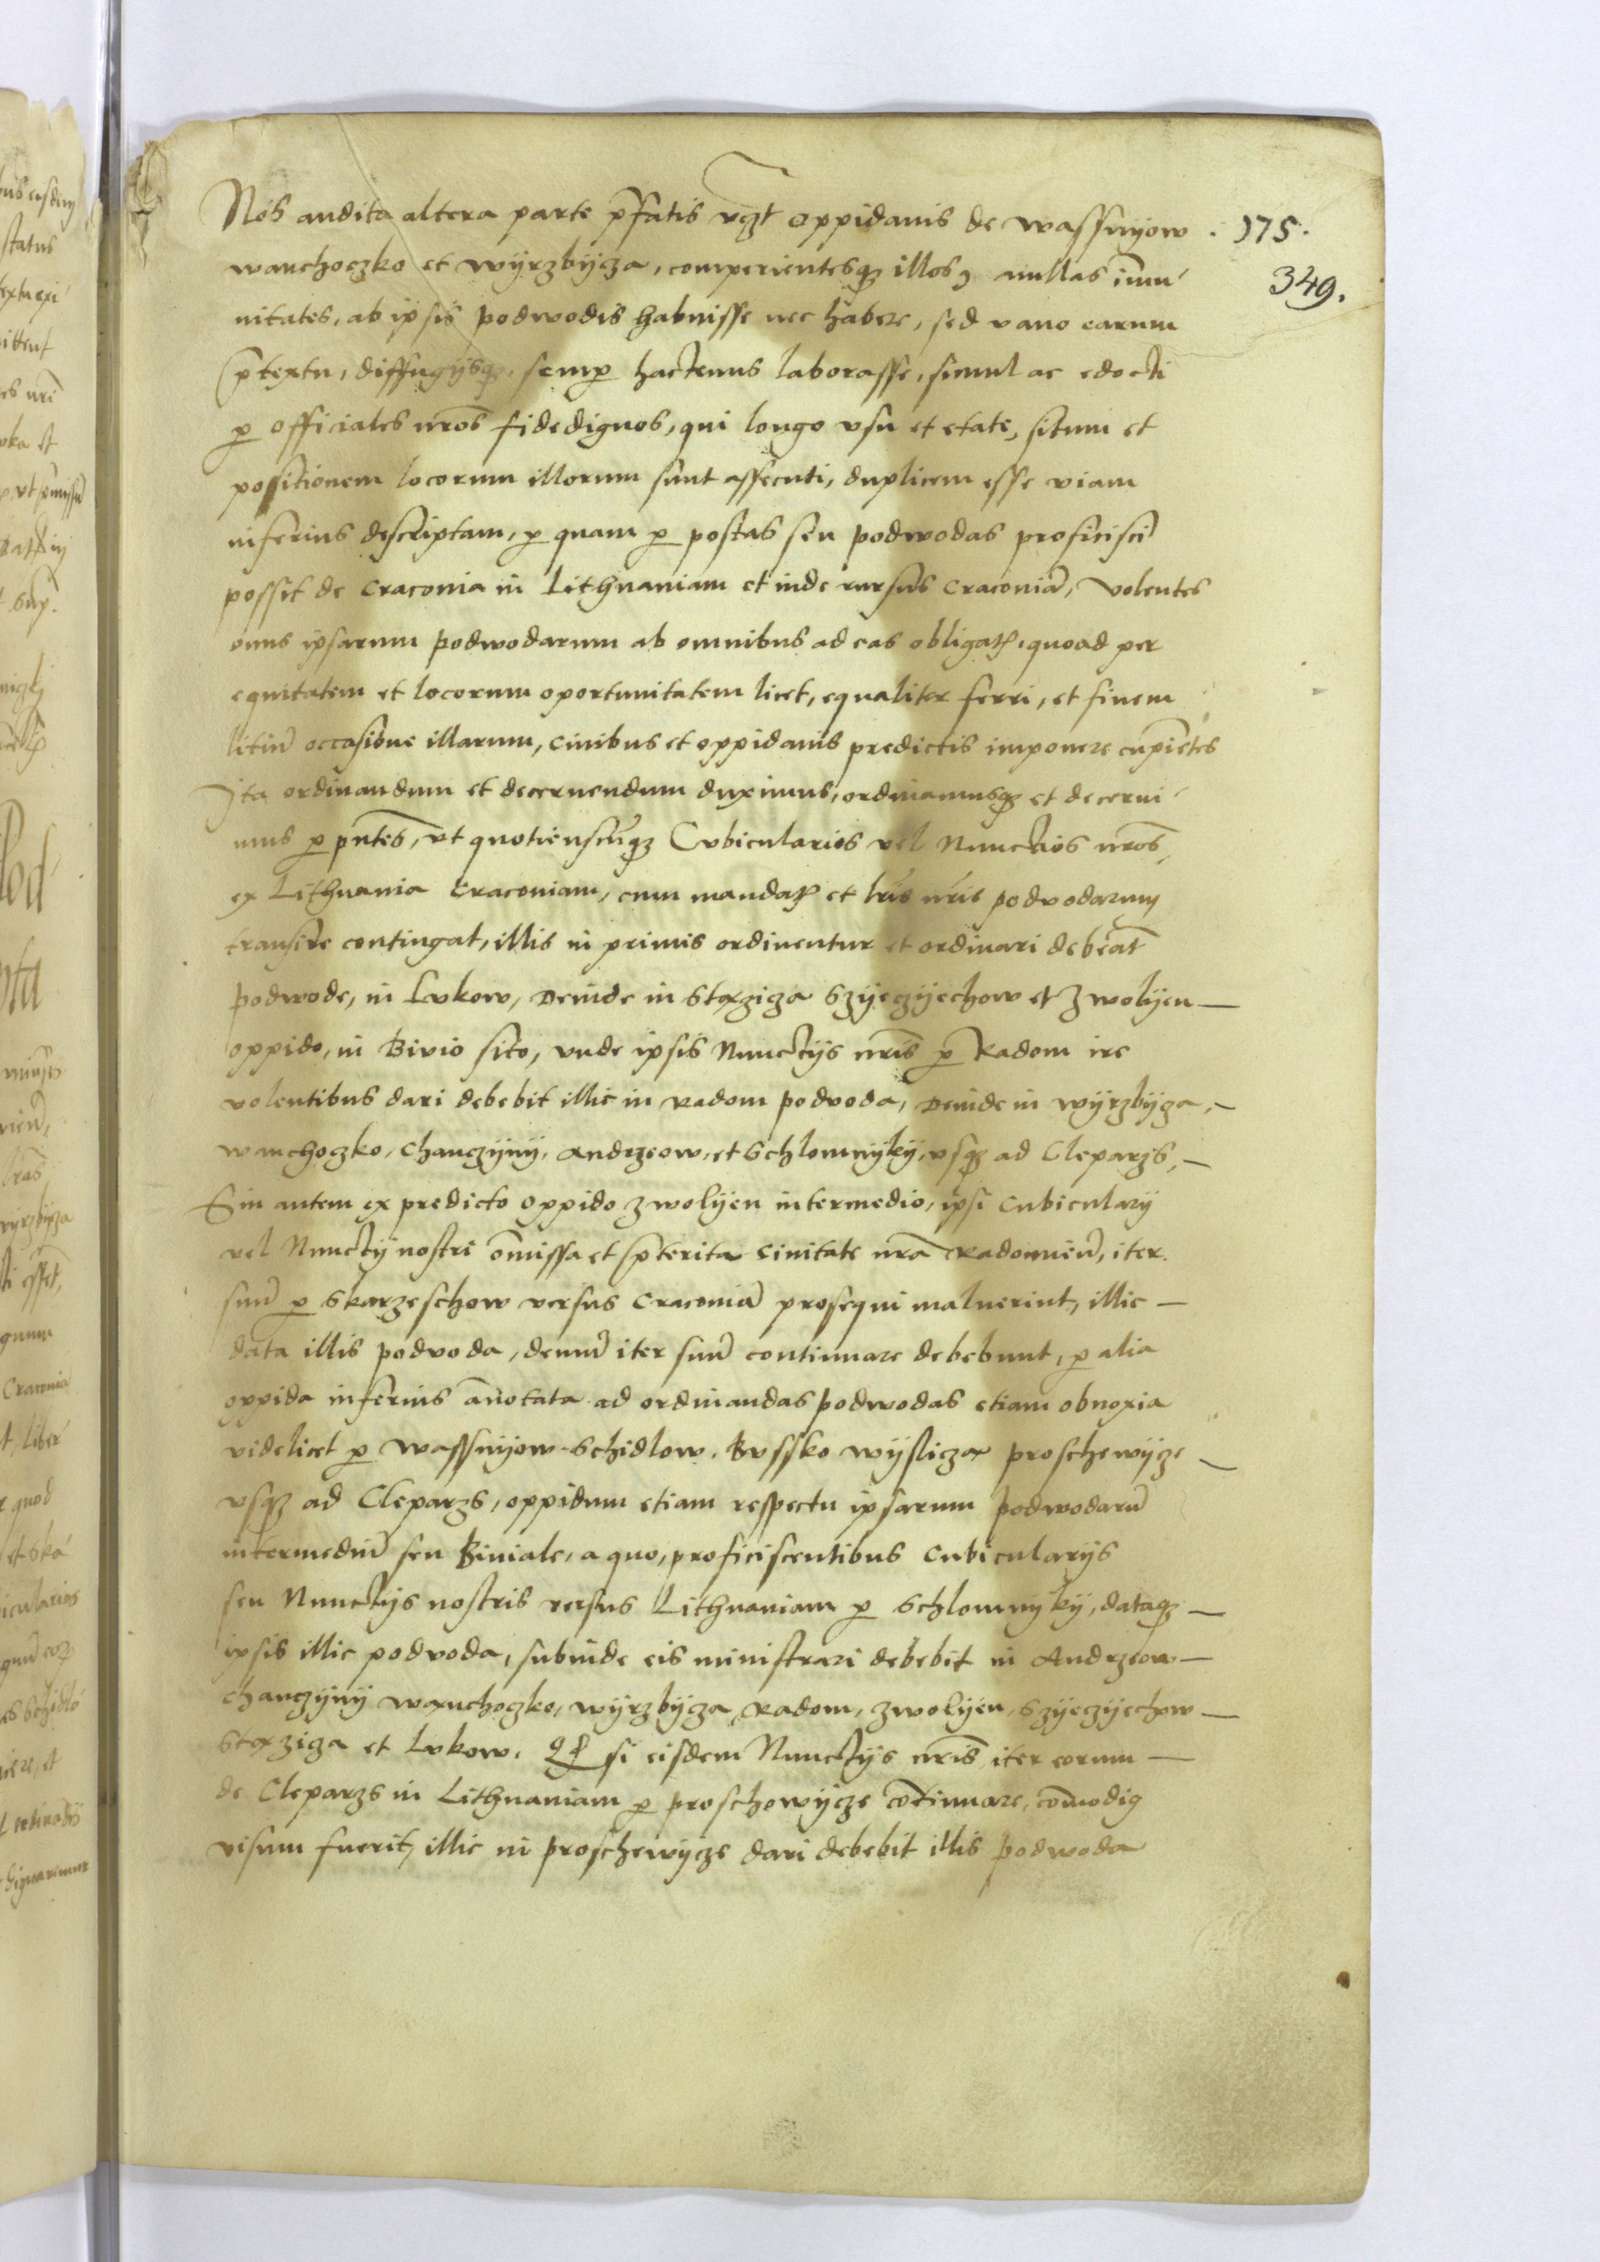 Nos audita altera parte p̄fatis vꝫt oppidanis de Wassnyow · 175 ·
Wanchoczko et Wyrzbycza, comperientesqꝫ illos, nullas im̄u 349.
nitates, ab ipsis podwodis habuisse nec habere, sed vano earum
p̄textu, diffugijsqꝫ, semꝑ hactenus laborasse, simul ac edocti
ꝑ officiales nr̄os fidedignos, qui longo vsu et etate, situm et
positionem locorum illorum sunt assecuti, duplicem esse viam
inferius descriptam, ꝑ quam ꝑ postas seu podwodas proficisci
possit de Craconia in Lithuaniam et inde rursus Craconiā, Volentes
onus ipsarum podwodarum ab omnibus ad eas obligatꝭ, quoad per
equitatem et locorum oportunitatem licet, equaliter ferri, et finem
litiū occasione illarum, Ciuibus et oppidanis predictis imponere cupiētes
Ita ordinandum et decernendum duximus, ordinamusqꝫ et decerni
mus ꝑ pn̄tes, vt quotienscūqꝫ Cubicularios vel Nunctios nr̄os,
ex Lithuania Craconiam, cum mandatꝭ et lr̄is nr̄is podvodarum
transire contingat, illis in primis ordinentur et ordinari debeāt
podwode, in Lukow, Deinde in Stęziga Szyeczyechow et Zwolyen —
oppido, in Biuio sito, vnde ipsis Nunctijs nr̄is ꝑ Radom ire
volentibus dari debebit illic in Radom podvoda, Deinde in Wyrzbyza, —
Wanchoczko, Chanczyny, Andrzeow, et Schlomnyky, vsqꝫ ad Cleparzs, —
Sin autem ex predicto oppido Zwolyen intermedio, ipsi Cubicularij
vel Nunctij nostri om̄issa et p̄terita Ciuitate nr̄a Radomien̄, iter
suū ꝑ Skarzeschow versus Craconiā prosequi maluerint, illic —
data illis podvoda, demū iter suū continuare debebunt, ꝑ alia
oppida inferius an̄otata ad ordinandas podwodas etiam obnoxia
videlicet ꝑ Wassnyow Schidlow, Bussko Wyslicza Proschewycze —
vsqꝫ ad Cleparzs, oppidum etiam respectu ipsarum podwodarū
intermediū seu Biuiale, a quo, proficiscentibus Cubicularijs
seu Nunctijs nostris versus Lithuaniam ꝑ Schlomnyky, dataqꝫ —
ipsis illic podvoda, subinde eis ministrari debebit in Andrzeow —
Chanczyny Wąnchoczko, Wyrzbycza, Radom, Zwolyen, Szyeczyechow —
Stęziga et Lukow. Qđ si eisdem Nunctijs nr̄is iter eorum —
de Cleparzs in Lithuaniam ꝑ Proschowycze cōtinuare, com̄odiꝰ
visum fuerit, illic in Proschewycze dari debebit illis podwoda